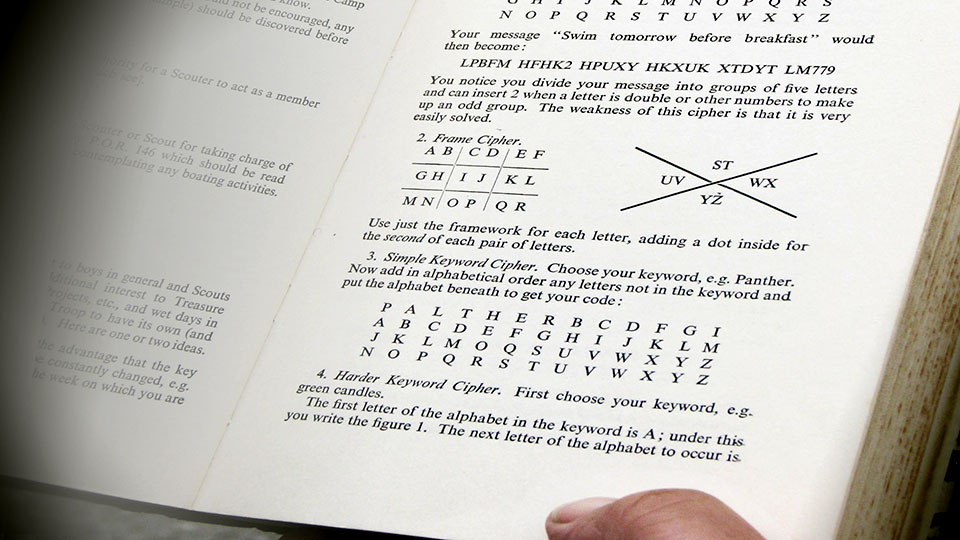 Camp
know.
not be encouraged, any
should be discovered before
for a Scouter to act as a member
see].
Scouter or Scout for taking charge of
P.O.R. 146 which should be read
contemplating any boating activities.
to boys in general and Scouts
interest to Treasure
etc., and wet days in
Troop to have its own (and
Here are one or two ideas.
the advantage that the key
constantly changed, e.g.
week on which you are
G H I J K L M N O P Q R S
N O P Q R S T U V W X Y Z
Your message “Swim tomorrow before breakfast” would
then become:
LPBFM HFHK2 HPUXY HKXUK XTDYT LM779
You notice you divide your message into groups of five letters
and can insert 2 when a letter is double or other numbers to make
up an odd group. The weakness of this cipher is that it is very
easily solved.
2. Frame Cipher.
A B C D E F
G H I J K L
M N O P Q R
ST
UV WX
YZ
Use just the framework for each letter, adding a dot inside for
the second of each pair of letters.
3. Simple Keyword Cipher. Choose your keyword, e.g. Panther.
Now add in alphabetical order any letters not in the keyword and
put the alphabet beneath to get your code:
P A L T H E R B C D F G I
A B C D E F G H I J K L M
J K L M O Q S U V W X Y Z
N O P Q R S T U V W X Y Z
4. Harder Keyword Cipher. First choose your keyword, e.g.
green candles.
The first letter of the alphabet in the keyword is A; under this
you write the figure 1. The next letter of the alphabet to occur is